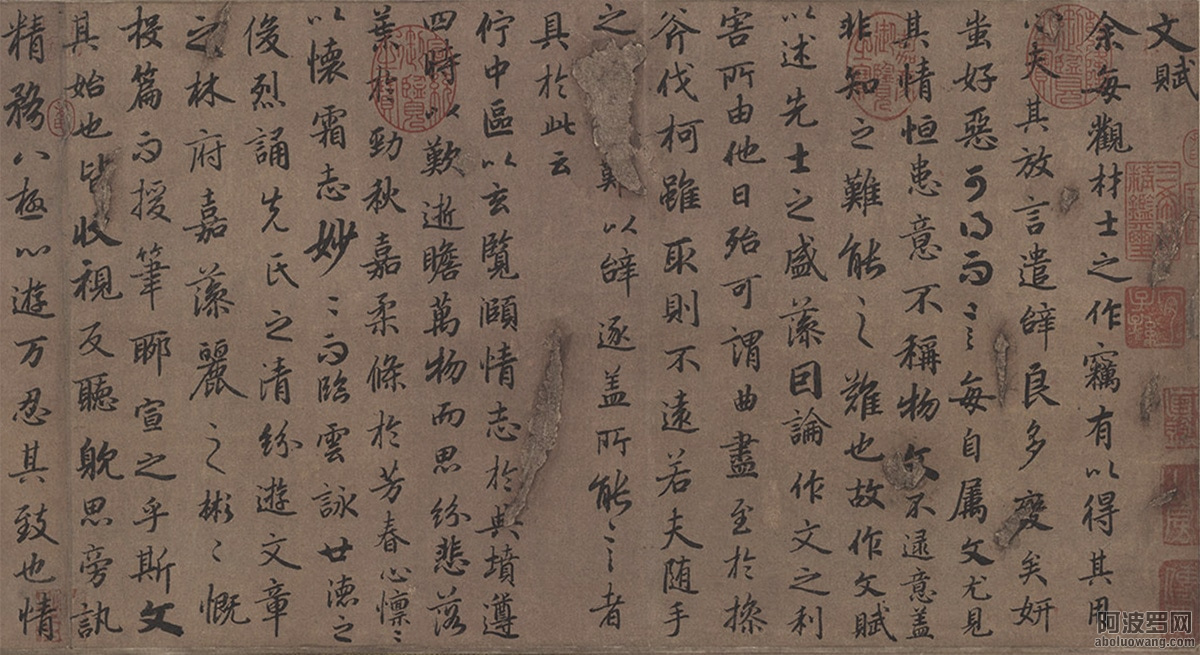 文賦
余每觀材士之作竊有以得其用
心夫其放言遣辭良多變矣妍
蚩好惡可得而言每自属文尤見
其情恒患意不稱物文不逮意盖
非知之難能之難也故作文賦
以述先士之盛藻因論作文之利
害所由他日殆可謂曲盡至於操
斧伐柯雖取則不遠若夫随手
之難以辭逐盖所能言者
具於此云
佇中區以玄覽頤情志於典墳遵
四時以歎逝瞻萬物而思紛悲落
葉於勁秋嘉柔條於芳春心懍〻
以懷霜志妙〻而臨雲詠世德之
俊烈誦先氏之清紛遊文章
之林府嘉藻麗之彬〻慨
投篇而授筆聊宣之乎斯文
其始也皆收視反聽躭思旁訊
精務八極心遊万忍其致也情
阿波罗网
aboluowang.com